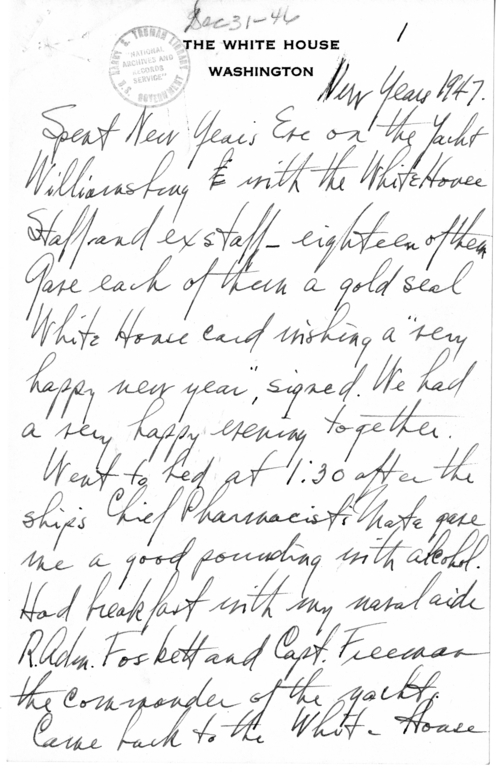 Dec 31-46
THE WHITE HOUSE
WASHINGTON
1
HARRY S. TRUMAN LIBRARY
"NATIONAL
ARCHIVES AND
RECORDS
SERVICE"
U.S. GOVERNMENT
New Years 1947.
Spent New Years Eve on the Yacht
Williamsburg with the White House
Staff and ex staff - eighteen of them
Gave each of them a gold seal
White House card wishing a "very
happy new year", signed. We had
a very happy evening together.
Went to bed at 1:30 after the
ships Chief Pharmacist's Mate gave
me a good pounding with alcohol.
Had breakfast with my naval aide
R.Adm. Foskett and Capt. Freeman
the commander of the yacht.
Came back to the White House